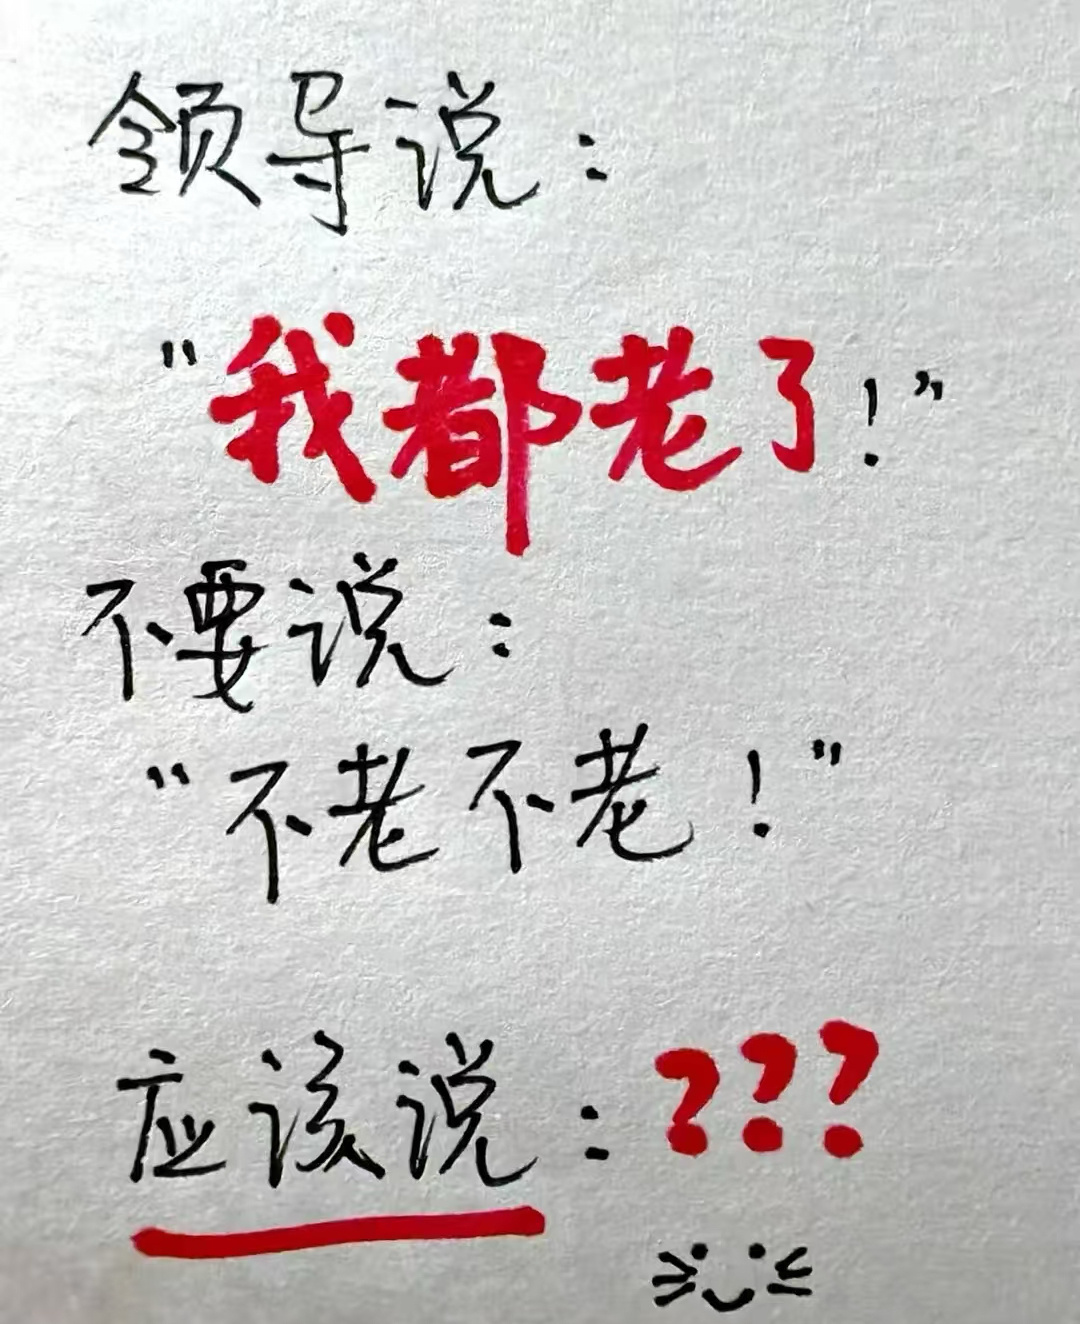 领导说：
“我都老了！”
不要说：
“不老不老！”
应该说：???